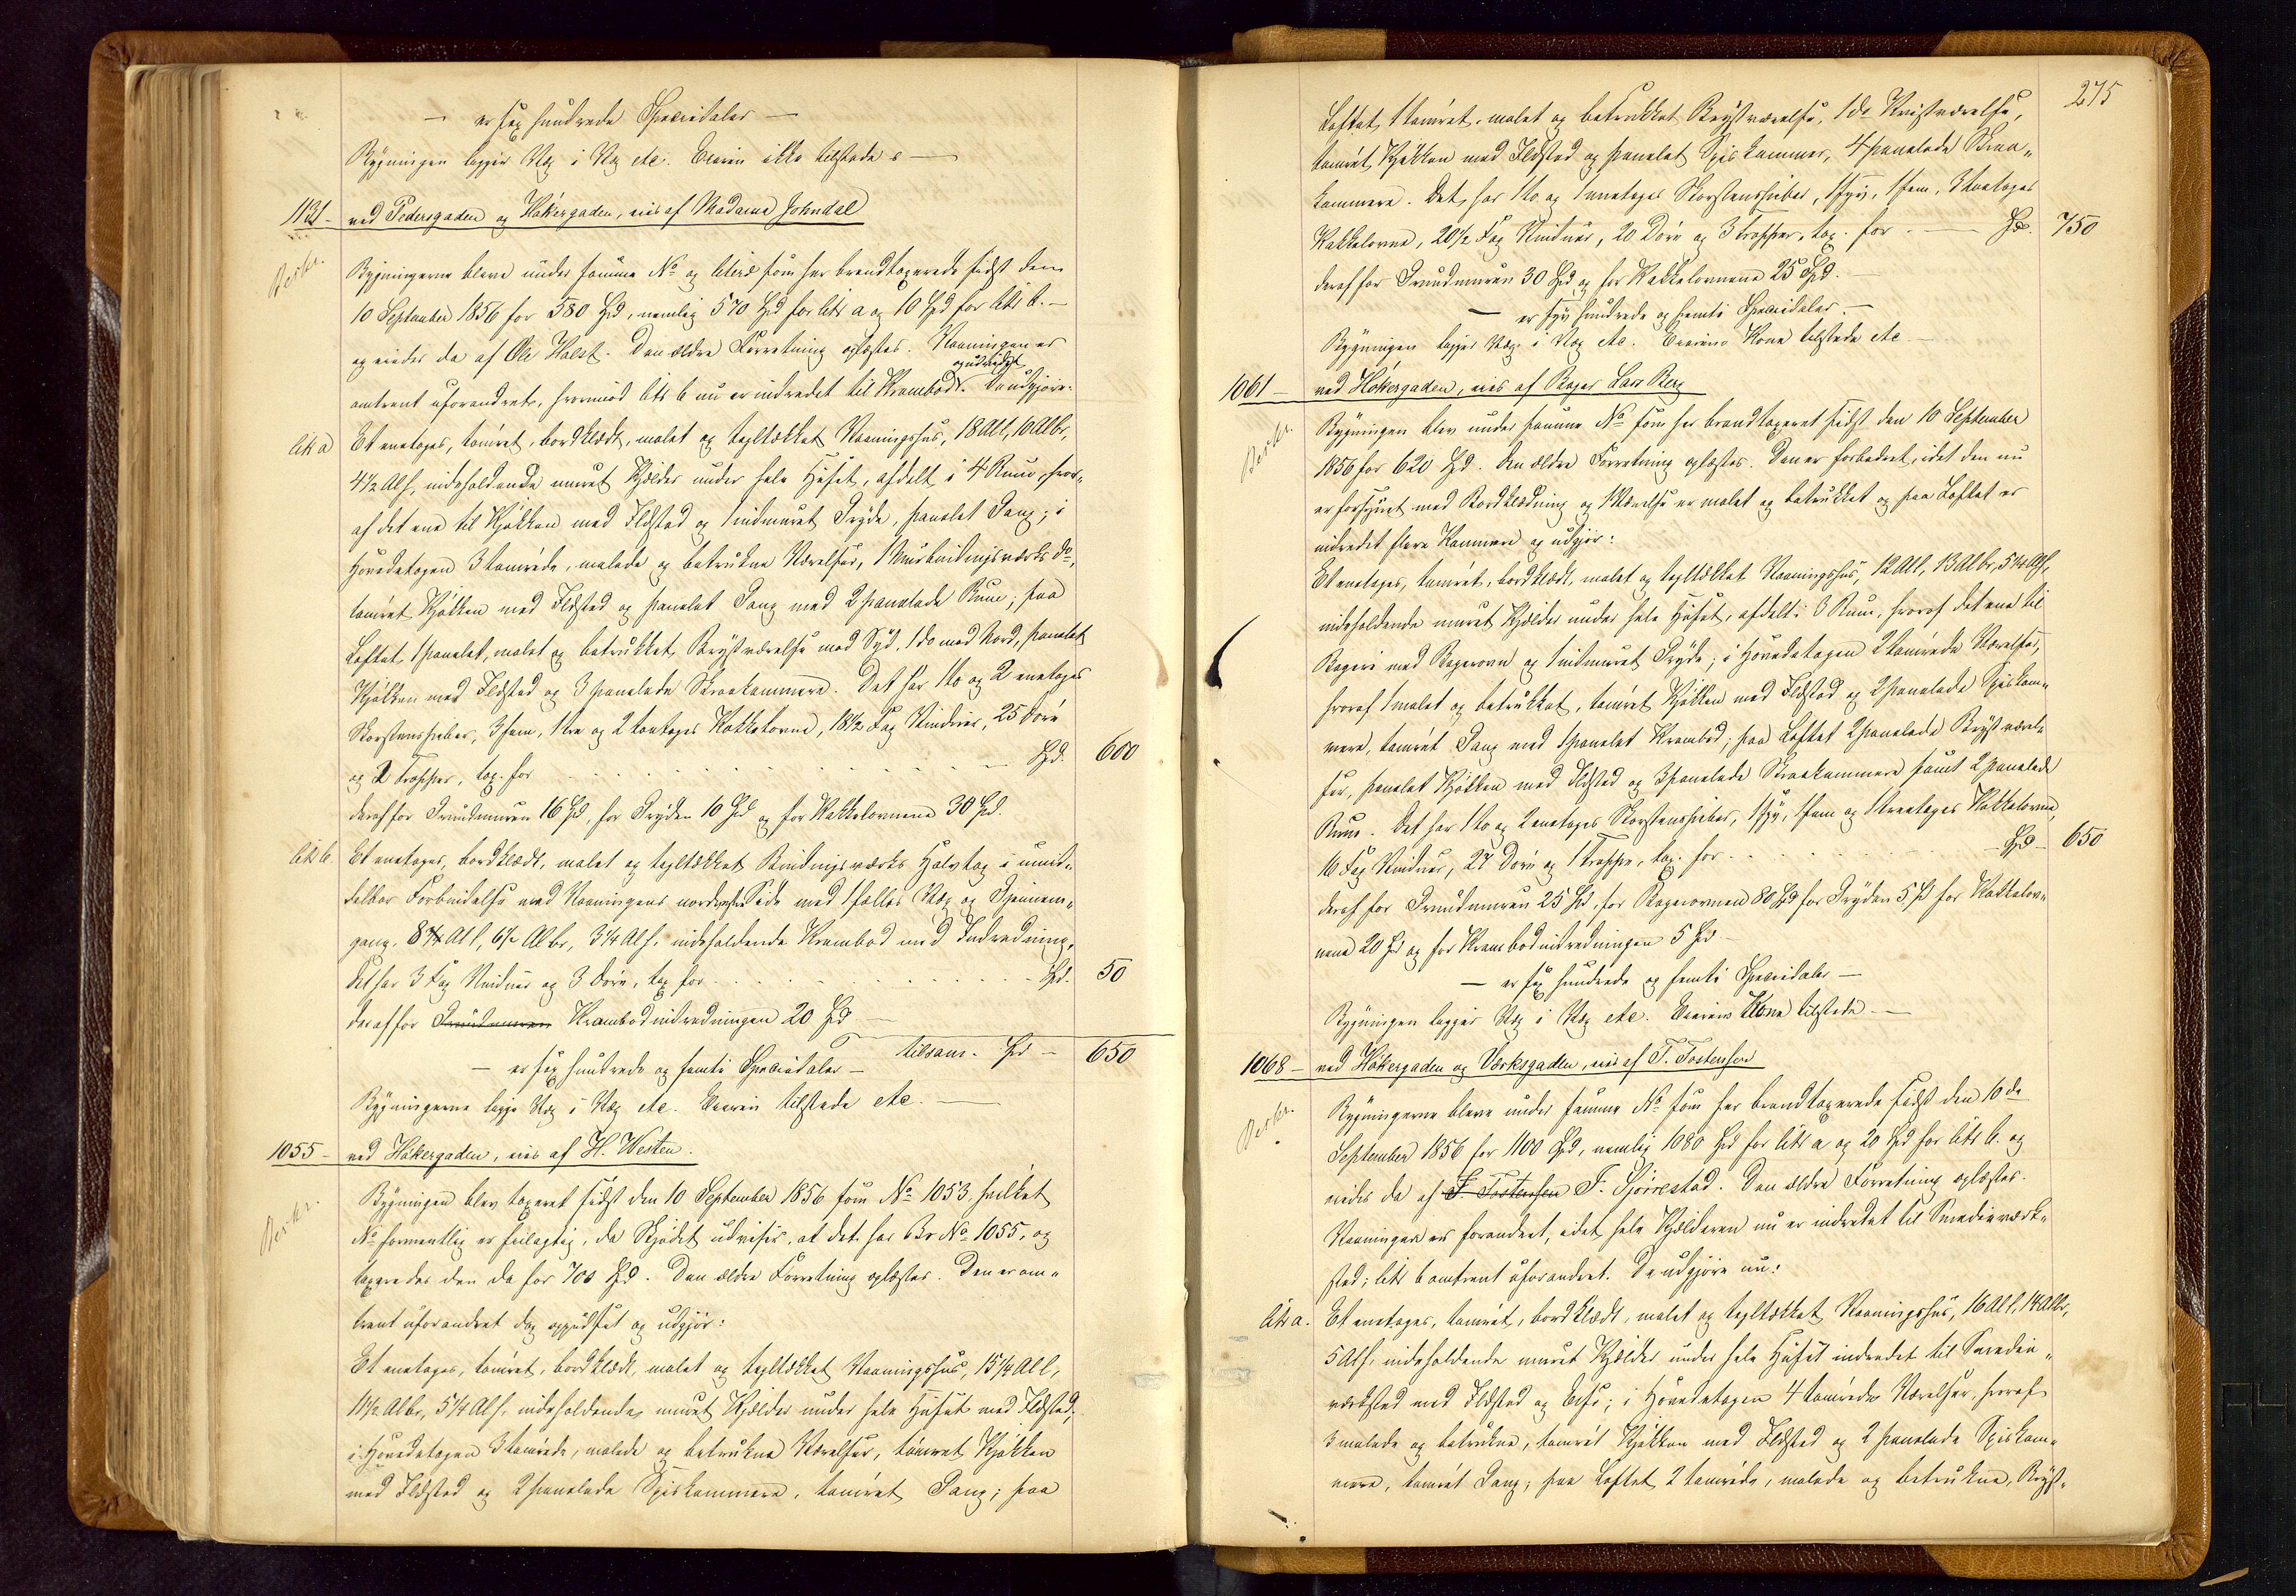 — er sex hundrede Speciedaler —
Bygningen ligger Væg i Væg etc. Eieren ikke tilstede —
1131 — ved Pedersgaden og Høkergaden, eies af Madame Johndal
Beskr. Bygningerne bleve under samme No og litra som her brandtaxerede sidst den
10 September 1856 for 580 Spd, nemlig 570 Spd for litr a og 10 Spd for litr b. —
og eiedes da af Ole Holst. Den ældre Forretning oplæstes. Vaaningen er
omtrent uforandret, hvorimod litr b nu er indredet til Krambod og udvidet. De udgjøre:
litr a) Et enetages, tømret, bordklædt, malet og teglhækket Vaaningshus, 18 Al l, 10 Al br,
4 1/2 Al h, indeholdende muret Kjelder under hele Huset, afdelt i 4 Rum, hvor-
af det ene til Kjøkken med Ildsted og 1 indmuret Gryde, panelet Gang; i
Hovedetagen 3 tømrede, malede og betrukne Værelser, 1 Murbindingsværks do,
tømret Kjøkken med Ildsted og panelet Gang med 2 panelede Rum; paa
Loftet 1 panelet, malet og betrukket Brystværelse mod Syd, 1 do mod Nord, panelet
Kjøkken med Ildsted og 3 panelede Skraakammere. Det har 1 to og 2 enetages
Skorstenspiber, 3 fem, 1 tre og 2 toetages Kakkelovne, 18 1/2 Fag Vinduer, 25 Døre
og 2 Trapper, tax. for . . . . . — Spd. 600
deraf for Grundmuren 16 Spd, for Gryden 10 Spd og for Kakkelovnene 30 Spd.
litr b. Et enetages, bordklædt, malet og teglhækket Bindingsværks Halvtag i umid-
delbar Forbindelse med Vaaningens nordvestre Side med fælles Væg og Gjennem-
gang, 8 3/4 Al l, 6 1/2 Al br, 3 1/4 Al h, indeholdende Krambod med Indredning,
det har 3 Fag Vinduer og 3 Døre, tax for . . . . . — Spd. 50
deraf for Grundmuren Krambodindredningen 20 Spd —
tilsam. Spd — 650
— er sex hundrede og femti Speciedaler —
Bygningerne ligge Væg i Væg etc. Eieren tilstede etc. —
1055 — ved Høkergaden, eies af H. Westen.
Beskr. Bygningen blev taxeret sidst den 10 September 1856 som No 1053, hvilket
No formentlig er feilagtig, da Skjødet udviser, at det har Br No 1055, og
taxeredes den da for 700 Spd. Den ældre Forretning oplæstes. Den er om-
trent uforandret dog oppudset og udgjør:
Et enetages, tømret, bordklædt, malet og teglhækket Vaaningshus, 15 1/4 Al l,
11 1/2 Al br, 5 1/4 Al h, indeholdende muret Kjelder under hele Huset med Ildsted;
i Hovedetagen 3 tømrede, malede og betrukne Værelser, tømret Kjøkken
med Ildsted og 2 panelede Spiskammere, tømret Gang; paa
275
Loftet 1 tømret, malet og betrukket Brystværelse, 1 do Kvistværelse,
tømret Kjøkken med Ildsted og panelet Spiskammer, 4 panelede Skraa-
kammere. Det har 1 to og 1 enetages Skorstenspiber, 1 syv, 1 fem, 3 toetages
Kakkelovne, 20 1/2 Fag Vinduer, 20 Døre og 3 Trapper, tax. for . — Spd. 750
deraf for Grundmuren 30 Spd og for Kakkelovnene 25 Spd. —
— er syv hundrede og femti Speciedaler. —
Bygningen ligger Væg i Væg etc. Eierens Kone tilstede etc —
1061 — ved Høkergaden, eies af Bager Lars Berg
Beskr. Bygningen blev under samme No som her brandtaxeret sidst den 10 September
1856 for 620 Spd. Den ældre Forretning oplæstes. Den er forbedret, idet den nu
er forsynet med Bordklædning og 1 Værelse er malet og betrukket og paa Loftet er
indredet flere Kammere og udgjør:
Et enetages, tømret, bordklædt, malet og teglhækket Vaaningshus, 12 Al l, 13 Al br, 5 1/4 Al h,
indeholdende muret Kjelder under hele Huset, afdelt i 3 Rum, hvoraf det ene til
Bageri med Bagerovn og 1 indmuret Gryde; i Hovedetagen 2 tømrede Værelser,
hvoraf 1 malet og betrukket, tømret Kjøkken med Ildsted og 2 panelede Spiskam-
mere, tømret Gang med 1 panelet Krambod; paa Loftet 2 panelede Brystværel-
ser, panelet Kjøkken med Ildsted og 3 panelede Skraakammere samt 2 panelede
Rum. Det har 1 to og 2 enetages Skorstenspiber, 1 syv, 1 fem og 1 treetages Kakkelovne,
16 Fag Vinduer, 27 Døre og 1 Trappe, tax. for . . . . . — Spd — 650
deraf for Grundmuren 25 Spd, for Bagerovnen 80 Spd for Gryden 5 Spd for Kakkelov-
nene 20 Spd og for Krambodindredningen 5 Spd —
— er sex hundrede og femti Speciedaler —
Bygningen ligger Væg i Væg etc. Eierens Kone tilstede —
1068 — ved Høkergaden og Værksgaden, eies af T. Tostensen
Beskr. Bygningerne bleve under samme No som her brandtaxerede sidst den 10de
September 1856 for 1100 Spd, nemlig 1080 Spd for litr a og 20 Spd for litr b. og
eiedes da af T. Tostensen F. Sjørrestad. Den ældre Forretning oplæstes.
Vaaningen er forandret, idet hele Kjelderen nu er indredet til Smedieværk-
sted; litr b omtrent uforandret. De udgjøre nu:
litr a. Et enetages, tømret, bordklædt, malet og teglhækket Vaaningshus, 16 Al l, 14 Al br,
5 Al h, indeholdende muret Kjelder under hele Huset indredet til Smedie-
værksted med Ildsted og Esse; i Hovedetagen 4 tømrede Værelser, hvoraf
3 malede og betrukne, tømret Kjøkken med Ildsted og 2 panelede Spiskam-
mere, tømret Gang; paa Loftet 2 tømrede, malede og betrukne, Bryst-